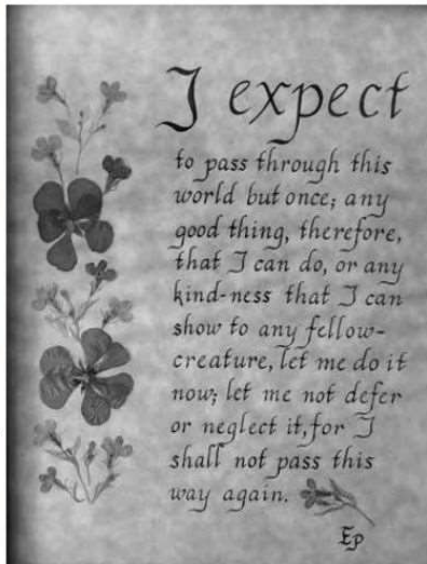 I expect
to pass through this
world but once; any
good thing, therefore,
that I can do, or any
kind-ness that I can
show to any fellow-
creature, let me do it
now; let me not defer
or neglect it, for I
shall not pass this
way again.
Ep